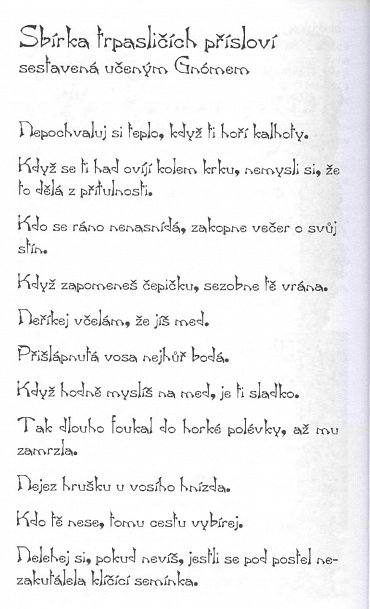 Sbírka trpasličích přísloví
sestavená učeným Gnómem
Nepochvaluj si teplo, když ti hoří kalhoty.
Když se ti had ovíjí kolem krku, nemysli si, že
to dělá z přítulnosti.
Kdo se ráno nenasnídá, zakopne večer o svůj
stín.
Když zapomeneš čepičku, sezobne tě vrána.
Neříkej včelám, že jíš med.
Přišlápnutá vosa nejhůř bodá.
Když hodně myslíš na med, je ti sladko.
Tak dlouho foukal do horké polévky, až mu
zamrzla.
Nejez hrušku u vosího hnízda.
Kdo tě nese, tomu cestu vybírej.
Nelehej si, pokud nevíš, jestli se pod postel ne-
zakutálela klíčící semínka.